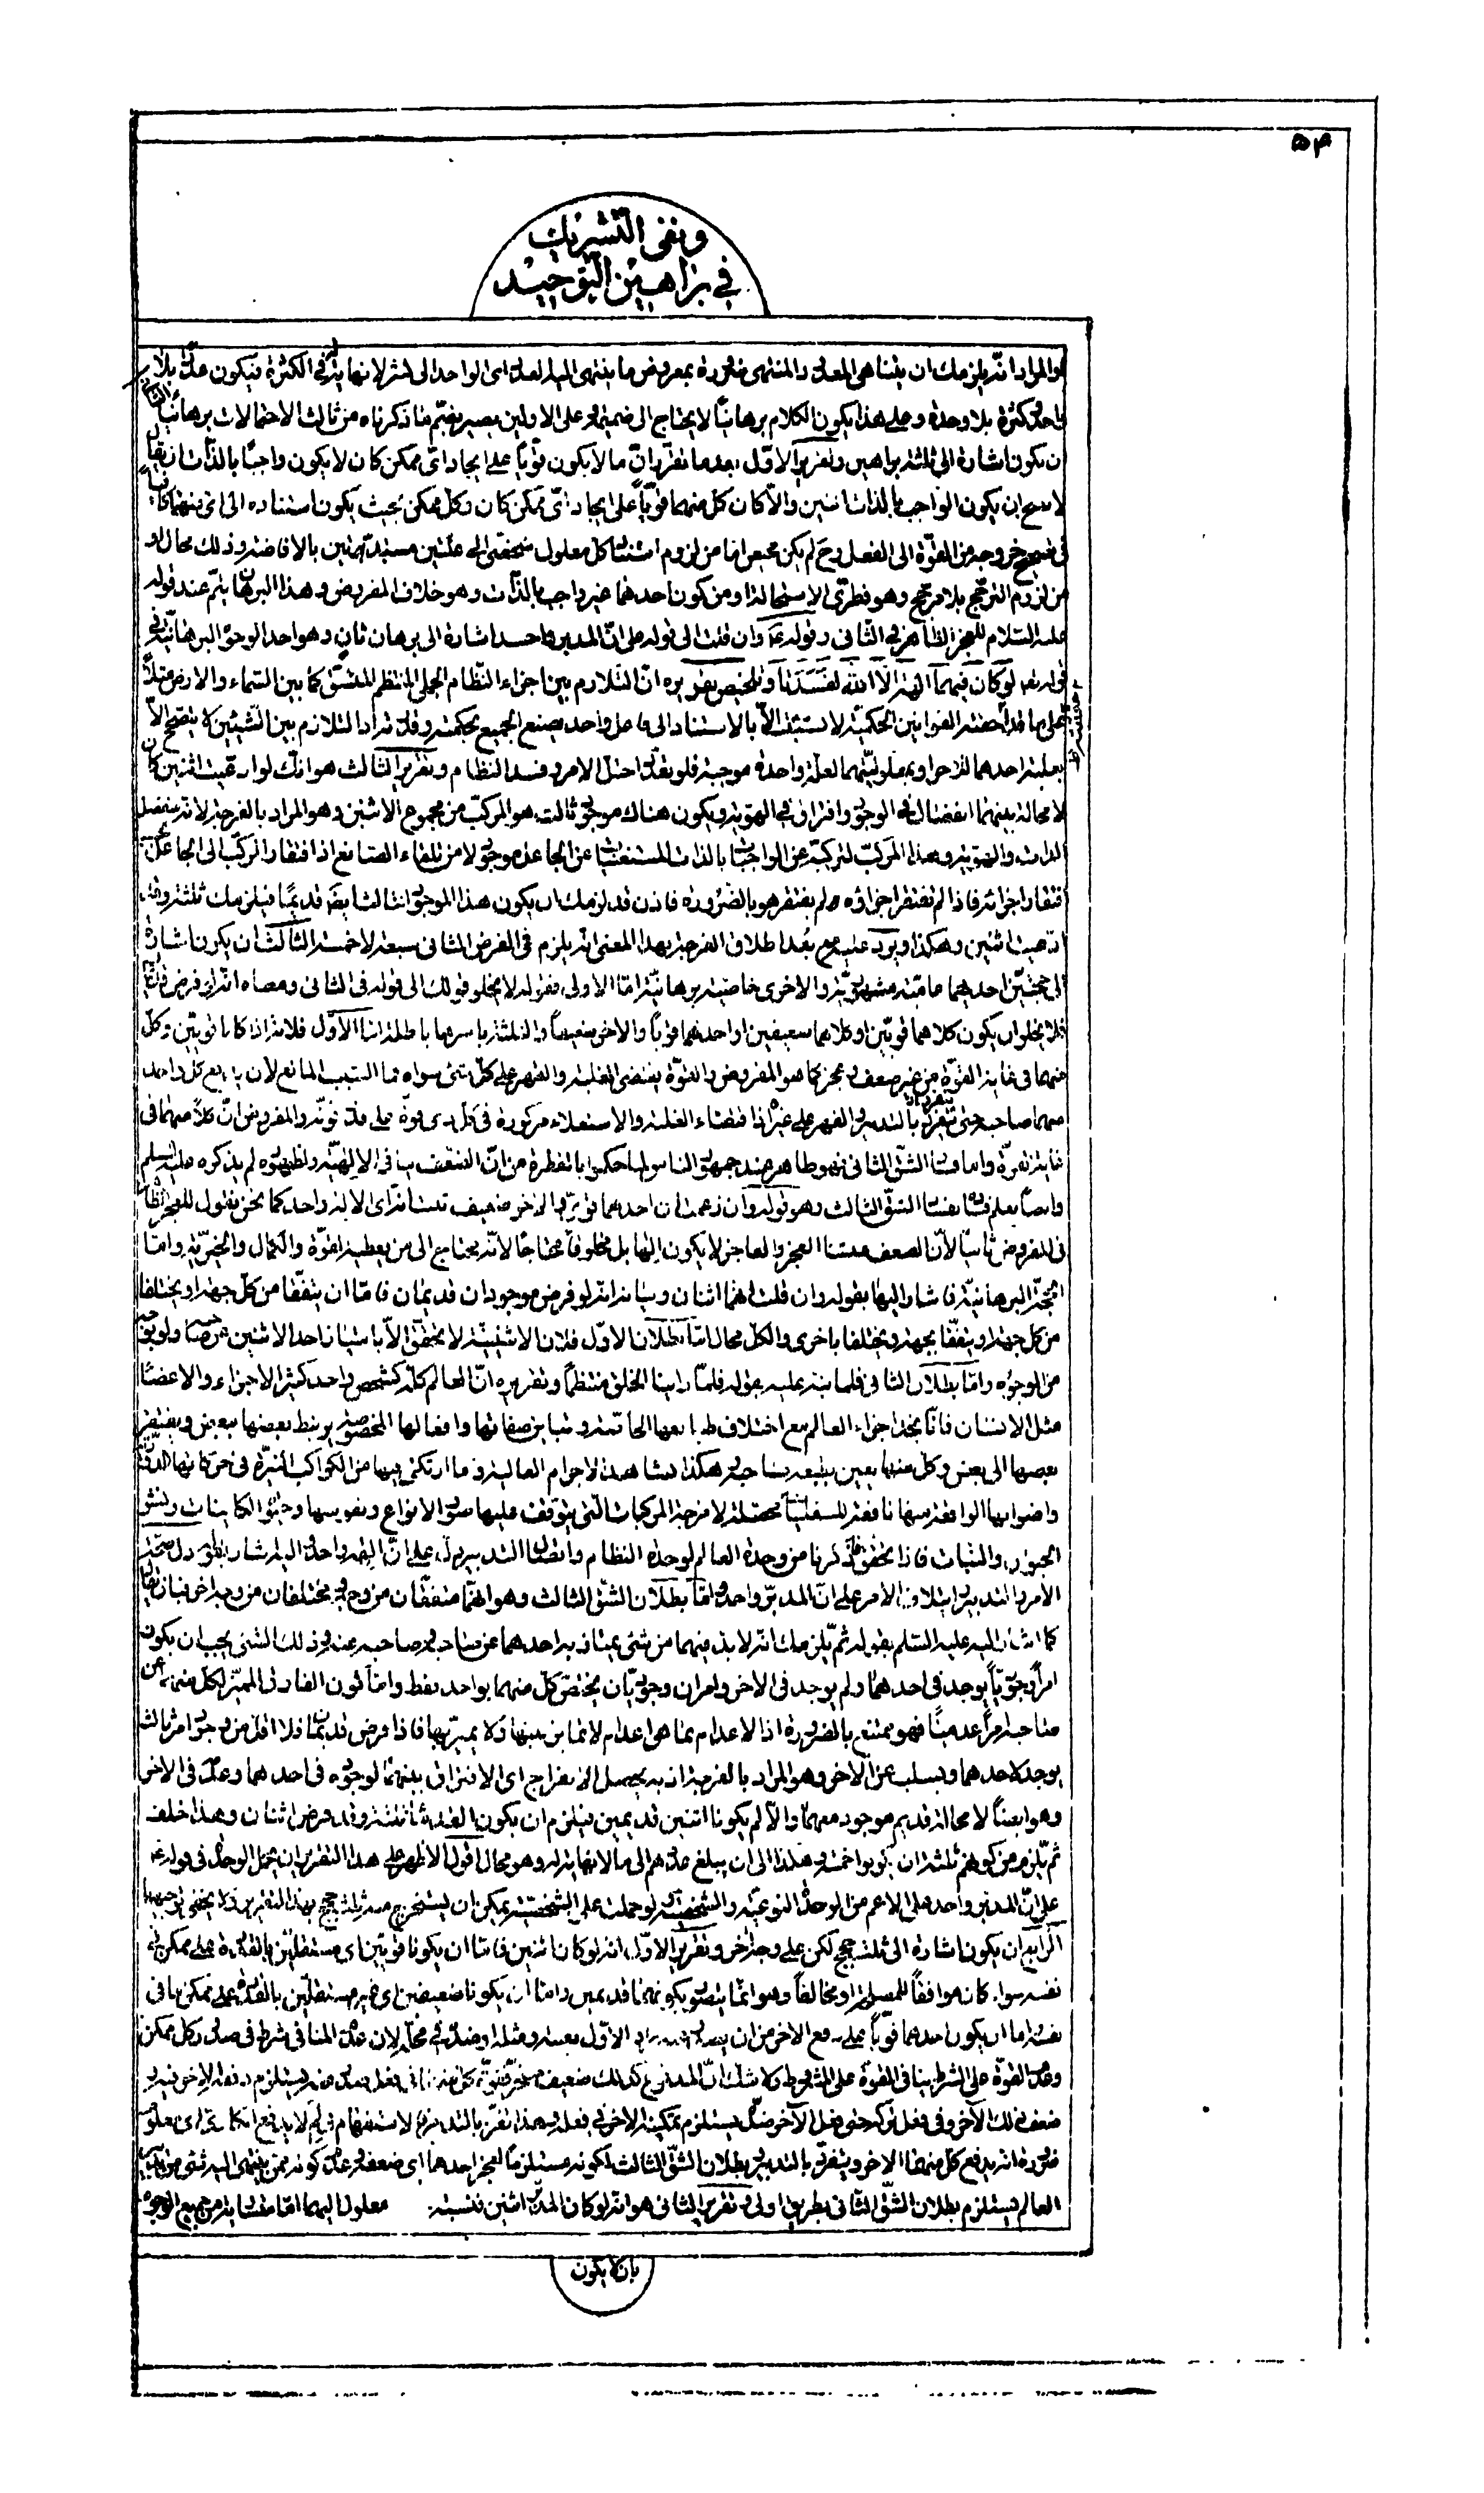 ٥٣
ونفى التشريك
في براهين التوحيد
والمراد انه يلزمك ان يتناهى المعدود المنتهى ضرورة بمعروض ما ينتهى اليه العدد اى الواحد الى كثير لا نهاية له في الكثرة فيكون عدد بلا
واحد وكثرة بلا وحدة وعلى هذا يكون الكلام برهانيا لا يحتاج الى ضميمة وعلى الاولين يصير بضم ما ذكرناه من ثالث الاحتمالات برهانيا الثانى
ان يكون اشارة الى ثلثة براهين وتقرير الاول بعد ما تقرر ان ما لا يكون قويا على ايجاد اى ممكن كان لا يكون واجبا بالذات ان يقال
لا يصح ان يكون الواجب بالذات اثنين والا كان كل منهما قويا على ايجاد اى ممكن كان وكل ممكن بحيث يكون استناده الى اى منهما كافيا
فى تصحيح خروجه من القوة الى الفعل وح لم يكن محيص اما من لزوم استناد كل معلول شخصى الى علتين مستبدتين بالافاضة وذلك محال او
من لزوم الترجح بلا مرجح وهو فطرى الاستحالة او من كون احدهما غير واجب بالذات وهو خلاف المفروض وهذا البرهان يتم عند قوله
عليه السلام للعجز الظاهر في الثانى وقوله ع وان قلت الى قوله على ان المدبر واحد اشارة الى برهان ثان وهو احد الوجوه البرهانية في
قوله تعالى لو كان فيهما آلهة الا الله لفسدتا وتلخيص تقريره ان التلازم بين اجزاء النظام الجملى المنتظم المتسق كما بين السماء والارض مثلا
على ما قد احصته القوانين الحكمية لا يستتب الا بالاستناد الى فاعل واحد يصنع الجميع بحكمته وقدرته اذ التلازم بين الشيئين لا يتصحح الا
بعلية احدهما للاخر او بمعلوليتهما لعلة واحدة موجبة فلو تعدد اختل الامر وفسد النظام وتقرير الثالث هو انك لو ادعيت اثنين كان
لا محالة بينهما انفصال في الوجود وافتراق في الهوية ويكون هناك موجود ثالث هو المركب من مجموع الاثنين وهو المراد بالفرجة لانه منفصل
الذات والهوية وهذا المركب لتركبه عن الواجبات بالذات المستغنيات عن الجاعل موجود لا من تلقاء الصانع اذ افتقار المركب الى الجاعل بحسب
افتقار اجزائه فاذا لم تفتقر اجزاؤه لم يفتقر هو بالضرورة فاذن قد لزمك ان يكون هذا الموجود الثالث ايضا قديما فيلزمك ثلثة وقد
ادعيت اثنين وهكذا ويرد عليه مع بعد اطلاق الفرجة بهذا المعنى انه يلزم في الفرض الثانى سبعة لا خمسة الثالث ان يكون اشارة
الى حجتين احدهما عامية مشهورية والاخرى خاصية برهانية اما الاولى فقوله لا يخلو قولك الى قوله فى الثانى ومعناه انه لو فرض قديمان
فلا يخلو ان يكون كلاهما قويين او كلاهما ضعيفين او احدهما قويا والاخر ضعيفا والثلثة باسرها باطلة اما الاول فلانه اذا كانا قويين وكل
منهما فى غاية القوة من غير ضعف وعجز كما هو المفروض والقوة يقتضى الغلبة والقهر على كل شئ سواه فما السبب المانع لان يدفع كل واحد
منهما صاحبه حتى يتفرد بالتدبير والقهر على غيره اذ اقتضاء الغلبة والاستعلاء مركوزة فى كل ذى قوة على قدر قوته والمفروض ان كلا منهما فى
غاية القوة واما فساد الشق الثانى فهو ظاهر عند جمهور الناس لما حكموا بالفطرة من ان الضعف ينافى الالهية ولظهوره لم يذكره عليه السلم
وايضا يعلم فساده بفساد الشق الثالث وهو قوله وان زعمت ان احدهما قوى والاخر ضعيف ثبت انه اى الاله واحد كما نحن نقول للعجز الظاهر
فى المفروض ثانيا لان الضعف منشأ العجز والعاجز لا يكون الها بل مخلوقا محتاجا لانه يحتاج الى من يعطيه القوة والكمال والخيرية واما
الحجة البرهانية فاشار اليها بقوله وان قلت انهما اثنان وبيانه انه لو فرض موجودان قديمان فاما ان يتفقا من كل جهة او يختلفا
من كل جهة او يتفقا بجهة ويختلفا باخرى والكل محال اما بطلان الاول فلان الاثنينية لا يتحقق الا بامتياز احد الاثنين عن صاحبه ولو بوجه
من الوجوه واما بطلان الثانى فلما نبه عليه بقوله فلما راينا الخلق منتظما وتقريره ان العالم كله كشخص واحد كثير الاجزاء والاعضاء
مثل الانسان فانا نجد اجزاء العالم مع اختلاف طبايعها الخاصة وتباين صفاتها وافعالها المخصوصة يرتبط بعضها ببعض ويفتقر
بعضها الى بعض وكل منها يعين بطبعه صاحبه وهكذا نشاهد الاجرام العالية وما ارتكز فيها من الكواكب النيرة فى حركاتها الدورية
واضوائها الواقعة منها نافعة للسفليات محصلة لامزجة المركبات التى يتوقف عليها صور الانواع ونفوسها وحيوة الكاينات ونشو
الحيوان والنبات فاذا تحقق ما ذكرنا من وحدة العالم لوحدة النظام واتصال التدبير دل على ان الهه واحد واليه اشار بقوله دل صحة
الامر والتدبير وايتلاف الامر على ان المدبر واحد واما بطلان الشق الثالث وهو انهما متفقان من وجه ومختلفان من وجه اخر فبان يقال
كما اشار اليه عليه السلم بقوله ثم يلزمك انه لا بد فيهما من شئ يمتاز به احدهما عن صاحبه وصاحبه عنه وذلك الشئ يجب ان يكون
امرا وجوديا يوجد فى احدهما ولم يوجد فى الاخر او امران وجوديان يختص كل منهما بواحد فقط واما كون الفارق المميز لكل منهما عن
صاحبه امرا عدميا فهو ممتنع بالضرورة اذ الاعدام بما هى اعدام لا تمايز بينها ولا تميز بها فاذا فرض قديمان فلا اقل من وجود امر ثالث
يوجد لاحدهما ويسلب عن الاخر وهو المراد بالفرجة اذ به يحصل الانفراج اى الافتراق بينهما لوجوده فى احدهما وعدمه فى الاخر
وهو ايضا لا محالة قديم موجود معهما والا لم يكونا اثنين قديمين فيلزم ان يكون القدماء ثلثة وقد فرض اثنان وهذا خلف
ثم يلزم من كونهم ثلثة ان يكونوا خمسة وهكذا الى ان يبلغ عددهم الى ما لا نهاية له وهو محال اقول الاظهر على هذا التقرير ان يحمل الوحدة فى قوله ع
على ان المدبر واحد على الاعم من الوحدة النوعية والشخصية ولو حملت على الشخصية يمكن ان يستخرج منه ثلث حجج بهذا التقرير ولا يخفى توجيهها
الرابع ان يكون اشارة الى ثلث حجج لكن على وجه اخر وتقرير الاول انه لو كان اثنين فاما ان يكونا قويين اى مستقلين بالقدرة على ممكن فى
نفسه سواء كان موافقا للمصلحة او مخالفا وهو انما يتصور بكونهما قديمين واما ان يكونا ضعيفين اى غير مستقلين بالقدرة على ممكن ما فى
نفسه واما ان يكون احدهما قويا على دفع الاخر من ان يصدر عنه مراد الاول بعينه او مثله او ضده فى محله لان عدم المنافى شرط فى صدور كل ممكن
وعدم القوة على الشرط ينافى القوة على المشروط ولا شك ان المدفوع كذلك ضعيف مسخر فقوة كل منهما فى فعل صدر منه يستلزم دفعه الاخر فيه
وضعف ذلك الاخر وفى فعل تركه حتى فعل الاخر ضده يستلزم تمكينه الاخر فى فعله وهذا تفرد بالتدبير فالاستفهام في لم لا يدفع انكارى اى معلوم
ضرورة انه يدفع كل منهما الاخر ويتفرد بالتدبير وبطلان الشق الثالث لكونه مستلزما لعجز احدهما اى ضعفه وعدم كونه ممن ينتهى اليه شئ من تدبير
العالم يستلزم بطلان الشق الثانى بطريق اولى وتقرير الثانى هو انه لو كان المدبر اثنين فنسبة معلول اليهما اما متساوية من جميع الوجوه
بان لا يكون